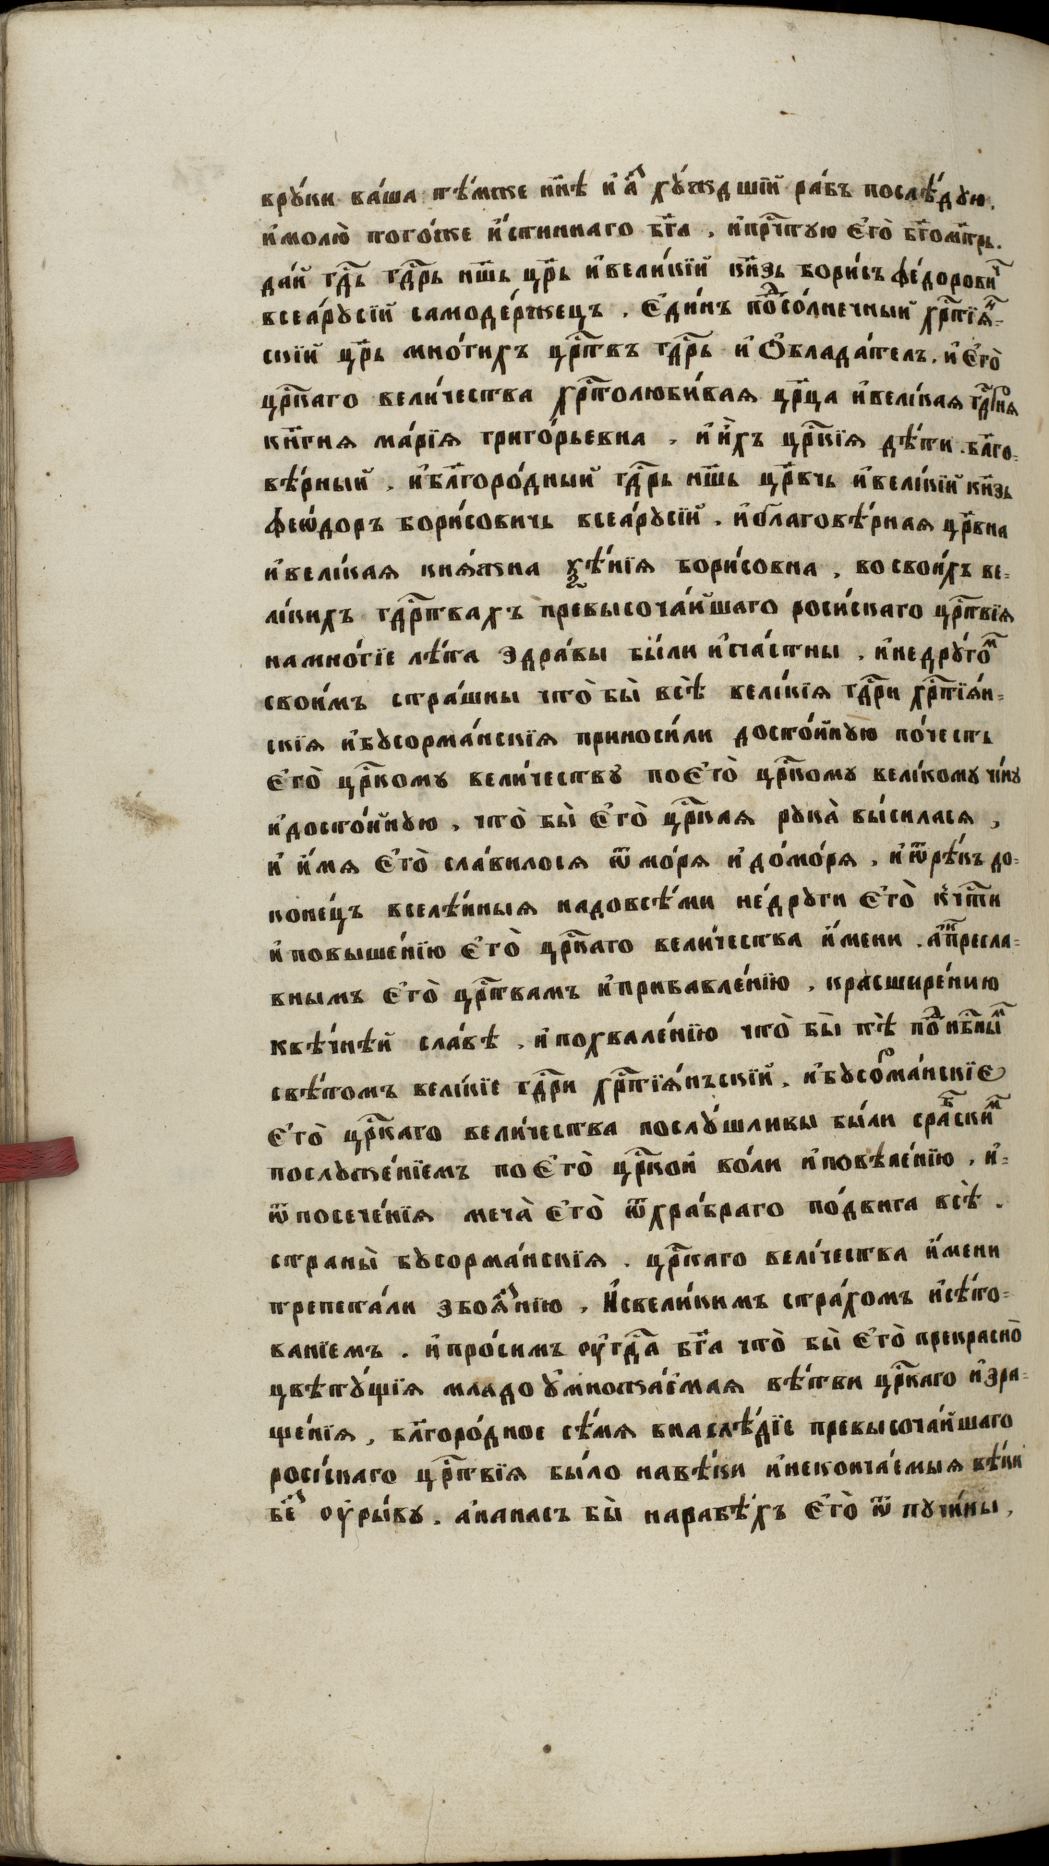 врꙋ́ки ва́ша тѣ́мже нн҃ѣ и҆ а҆́з хꙋ́ждшїй ра́бъ послѣ́дꙋю.
и҆молю̀ того́же и҆́стиннаго бг҃а , и҆пречⷭ҇тꙋю є҆го̀ бг҃омт҃рь.
да́й гдⷭ҇ь гдⷭ҇рь нш҃ь цр҃ь и҆вели́кїй кн҃зь бори́съ ѳе́доровиⷱ҇
всеа́рꙋсїй самоде́ржецъ . є҆ди́нъ поⷣсо́лнечный хрⷭ҇тїѧⷩ҇-
скїй цр҃ь мно́гихъ црⷭ҇твъ гдⷭ҇рь и҆ Ѻ҆блада́тель. и҆ є҆го̀
црⷭ҇каго вели́чества хрⷭ҇толюби́вая цр҃ца и҆вели́кая гдⷭ҇рня
кн҃гня ма́рїя григо́рьевна . и҆ и҆́хъ црⷭ҇кїя дѣ́ти . бл҃го-
вѣ́рный . и҆бл҃горо́дный гдⷭ҇рь нш҃ь цр҃вчь и҆вели́кїй кн҃зь
феѡ́доръ бори́совичь всеа́рꙋсїй . и҆благовѣ́рная цр҃вна
и҆вели́кая кня́жна ѯѣ́нїя бори́совна , во свои́хъ ве-
ли́кихъ гдⷭ҇рⷭ҇твахъ превысоча́йшаго роси́скаго црⷭ҇твїя
намно́гїе лѣ́та здра́вы бы́ли и҆сча́стны , и҆недрꙋ́гоⷨ
свои́мъ стра́шны что̀ бы̀ всѣ̀ вели́кїя гдⷭ҇ри хрⷭ҇тїя́н-
скїя и҆бꙋсорма́нскїя приноси́ли досто́йнꙋю по́честь
є҆го̀ црⷭ҇комꙋ вели́чествꙋ по є҆го̀ црⷭ҇комꙋ вели́комꙋ чи́нꙋ
и҆досто́йнꙋю , что̀ бы̀ є҆го̀ црⷭ҇кая рꙋка̀ вы́силася ,
и҆ и҆́мя є҆го̀ сла́вилося ѿ мо́ря и҆ до́мо́ря , и҆ ѿрѣ́къ до-
коне́цъ вселѣ́нныя надовсѣ́ми не́дрꙋги є҆го̀ кчⷭ҇ти
и҆ повыше́нїю є҆го̀ црⷭ҇каго вели́чества и҆́мени . а҆ кпресла-
внымъ є҆го̀ црⷭ҇твамъ и҆прибавле́нїю , кра́сшире́нию
квѣ́чнѣй сла́вѣ , и҆похвале́нїю что̀ бы̀ тѣ̀ поⷣнб҃ныⷨ
свѣ́томъ вели́кїе гдⷭ҇ри хрⷭ҇тїя́нъскїй , и҆бꙋсоⷬма́нскїе
є҆го̀ црⷭ҇каго вели́чества послꙋ́шливы бы́ли сра́бскиⷨ
послꙋже́нїемъ по є҆го̀ црⷭ҇кой во́ли и҆повѣле́нїю . и҆-
ѿ посече́нїя меча̀ є҆го̀ ѿхра́браго по́двига всѣ̀ .
страны̀ бꙋсорма́нскїя . црⷭ҇каго вели́чества и҆́мени
трепета́ли збоя́знїю , И҆свели́кимъ стра́хомъ и҆сѣ́то-
ванїемъ . и҆ про́симъ оу҆гдⷭ҇а бг҃а что̀ бы̀ є҆го̀ прекрасно̀
цвѣтꙋ́щїя младо ꙋ҆множа́емая вѣ́тви црⷭ҇каго и҆зра-
ще́нїя , бл҃горо́дное сѣ́мя внаслѣ́дїе превысоча́йшаго
роси́скаго црⷭ҇твїя бы́ло навѣ́ки и҆неконча́емыя вѣ́ки
беⷥ оу҆ры́вꙋ . а҆накасъ бы̀ нарабѣ́хъ є҆го̀ ѿ пꙋчи́ны ,